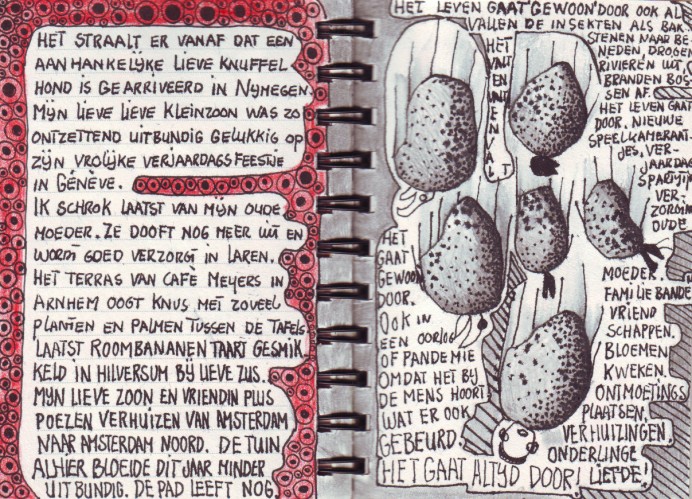 HET STRAALT ER VANAF DAT EEN
AANHANKELIJKE LIEVE KNUFFEL
HOND IS GEARRIVEERD IN NIJMEGEN.
MIJN LIEVE LIEVE KLEINZOON WAS ZO
ONTZETTEND UITBUNDIG GELUKKIG OP
ZIJN VROLIJKE VERJAARDAGSFEESTJE
IN GÉNÈVE.
IK SCHROK LAATST VAN MIJN OUDE
MOEDER. ZE DOOFT NOG MEER UIT EN
WORDT GOED VERZORGT IN LAREN.
HET TERRAS VAN CAFÈ MEIJERS IN
ARNHEM OOGT KNUS MET ZOVEEL
PLANTEN EN PALMEN TUSSEN DE TAFELS
LAATST ROOMBANANEN TAART GESMIK
KELD IN HILVERSUM BIJ LIEVE ZUS.
MIJN LIEVE ZOON EN VRIENDIN PLUS
POEZEN VERHUIZEN VAN AMSTERDAM
NAAR AMSTERDAM NOORD. DE TUIN
ALHIER BLOEIDE DIT JAAR MINDER
UITBUNDIG. DE PAD LEEFT NOG.
HET LEVEN GAAT GEWOON DOOR OOK AL
VALLEN DE INSEKTEN ALS BAK
STENEN NAAR BE
NEDEN, DROGEN
RIVIEREN UIT,
BRANDEN BOS
SEN AF.
HET LEVEN GAAT
DOOR. NIEUWE
SPEELKAMERAAT
JES, VER-
JAARDAG
SPARTIJ
VER-
ZORGING
OUDE
MOEDER.
FAMILIE BANDE
VRIEND
SCHAPPEN.
BLOEMEN
KWEKEN.
ONTMOETINGS
PLAATSEN,
VERHUIZINGEN.
ONDERLINGE
LIEFDE!
HET
VALT
EN
VALT
HET
GAAT
GEWOON
DOOR.
OOK IN
EEN OORLOG
OF PANDEMIE
OMDAT HET BIJ
DE MENS HOORT
WAT ER OOK
GEBEURD.
HET GAAT ALTIJD DOOR!